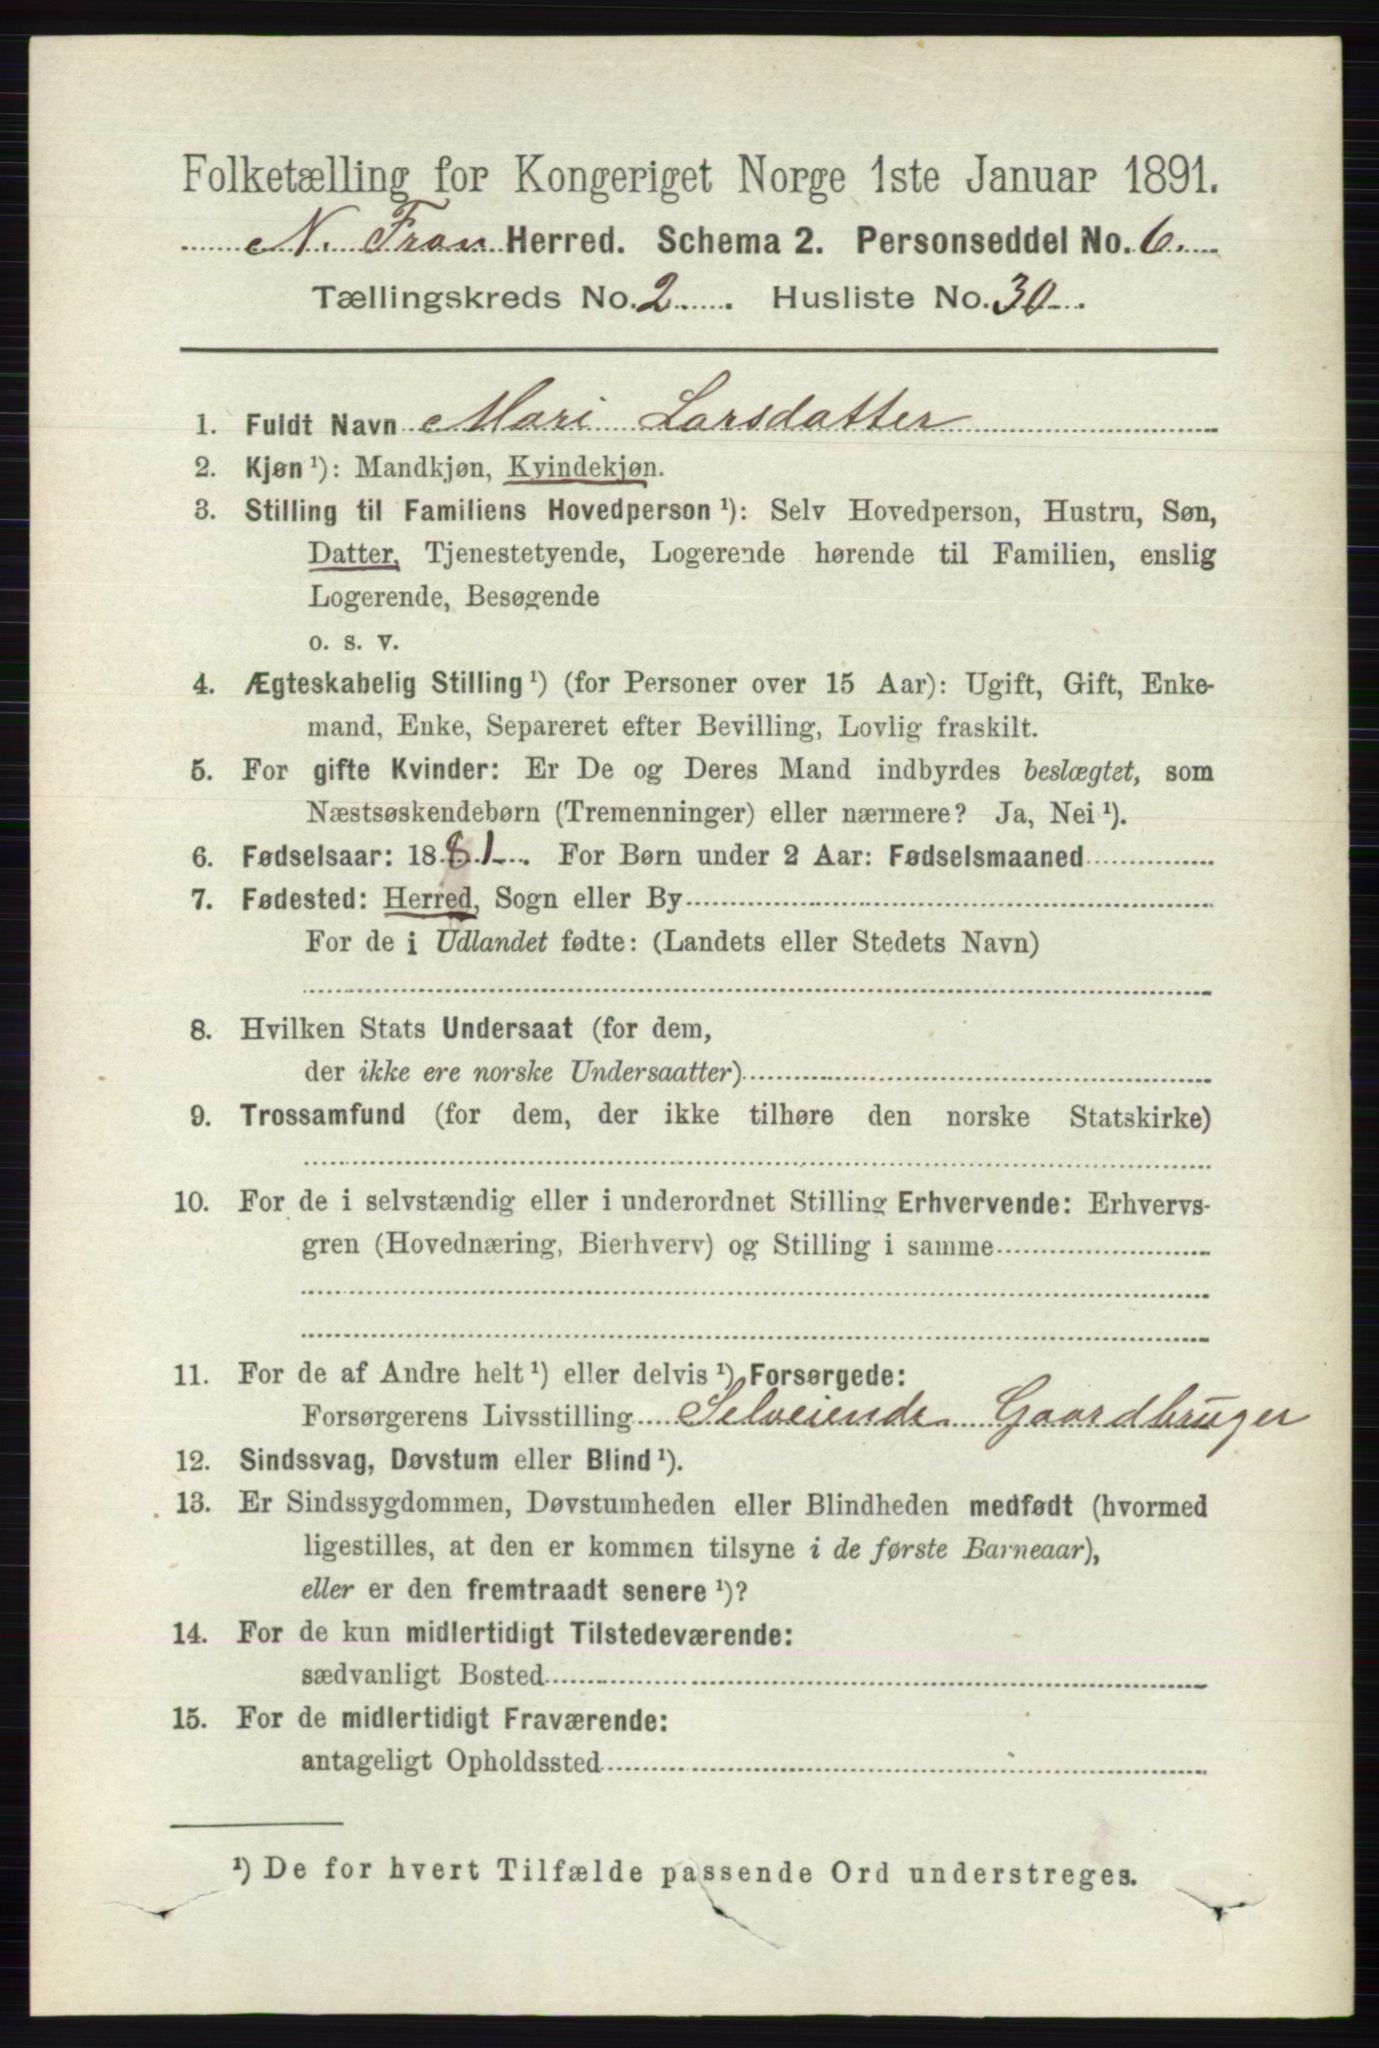 Folketælling for Kongeriget Norge 1ste Januar 1891.
N. Fron Herred. Schema 2. Personseddel No. 6.
Tællingskreds No. 2. Husliste No. 30.
1. Fuldt Navn Mari Larsdatter
2. Kjøn ¹): Mandkjøn, Kvindekjøn.
3. Stilling til Familiens Hovedperson ¹): Selv Hovedperson, Hustru, Søn,
Datter, Tjenestetyende, Logerende hørende til Familien, enslig
Logerende, Besøgende
o. s. v.
4. Ægteskabelig Stilling ¹) (for Personer over 15 Aar): Ugift, Gift, Enke-
mand, Enke, Separeret efter Bevilling, Lovlig fraskilt.
5. For gifte Kvinder: Er De og Deres Mand indbyrdes beslægtet, som
Næstsøskendebørn (Tremenninger) eller nærmere? Ja, Nei ¹).
6. Fødselsaar: 1881. For Børn under 2 Aar: Fødselsmaaned
7. Fødested: Herred, Sogn eller By
For de i Udlandet fødte: (Landets eller Stedets Navn)
8. Hvilken Stats Undersaat (for dem,
der ikke ere norske Undersaatter)
9. Trossamfund (for dem, der ikke tilhøre den norske Statskirke)
10. For de i selvstændig eller i underordnet Stilling Erhvervende: Erhvervs-
gren (Hovednæring, Bierhverv) og Stilling i samme
11. For de af Andre helt ¹) eller delvis ¹) Forsørgede:
Forsørgerens Livsstilling Selveiende Gaardbruger
12. Sindssvag, Døvstum eller Blind ¹).
13. Er Sindssygdommen, Døvstumheden eller Blindheden medfødt (hvormed
ligestilles, at den er kommen tilsyne i de første Barneaar),
eller er den fremtraadt senere ¹)?
14. For de kun midlertidigt Tilstedeværende:
sædvanligt Bosted
15. For de midlertidigt Fraværende:
antageligt Opholdssted
¹) De for hvert Tilfælde passende Ord understreges.